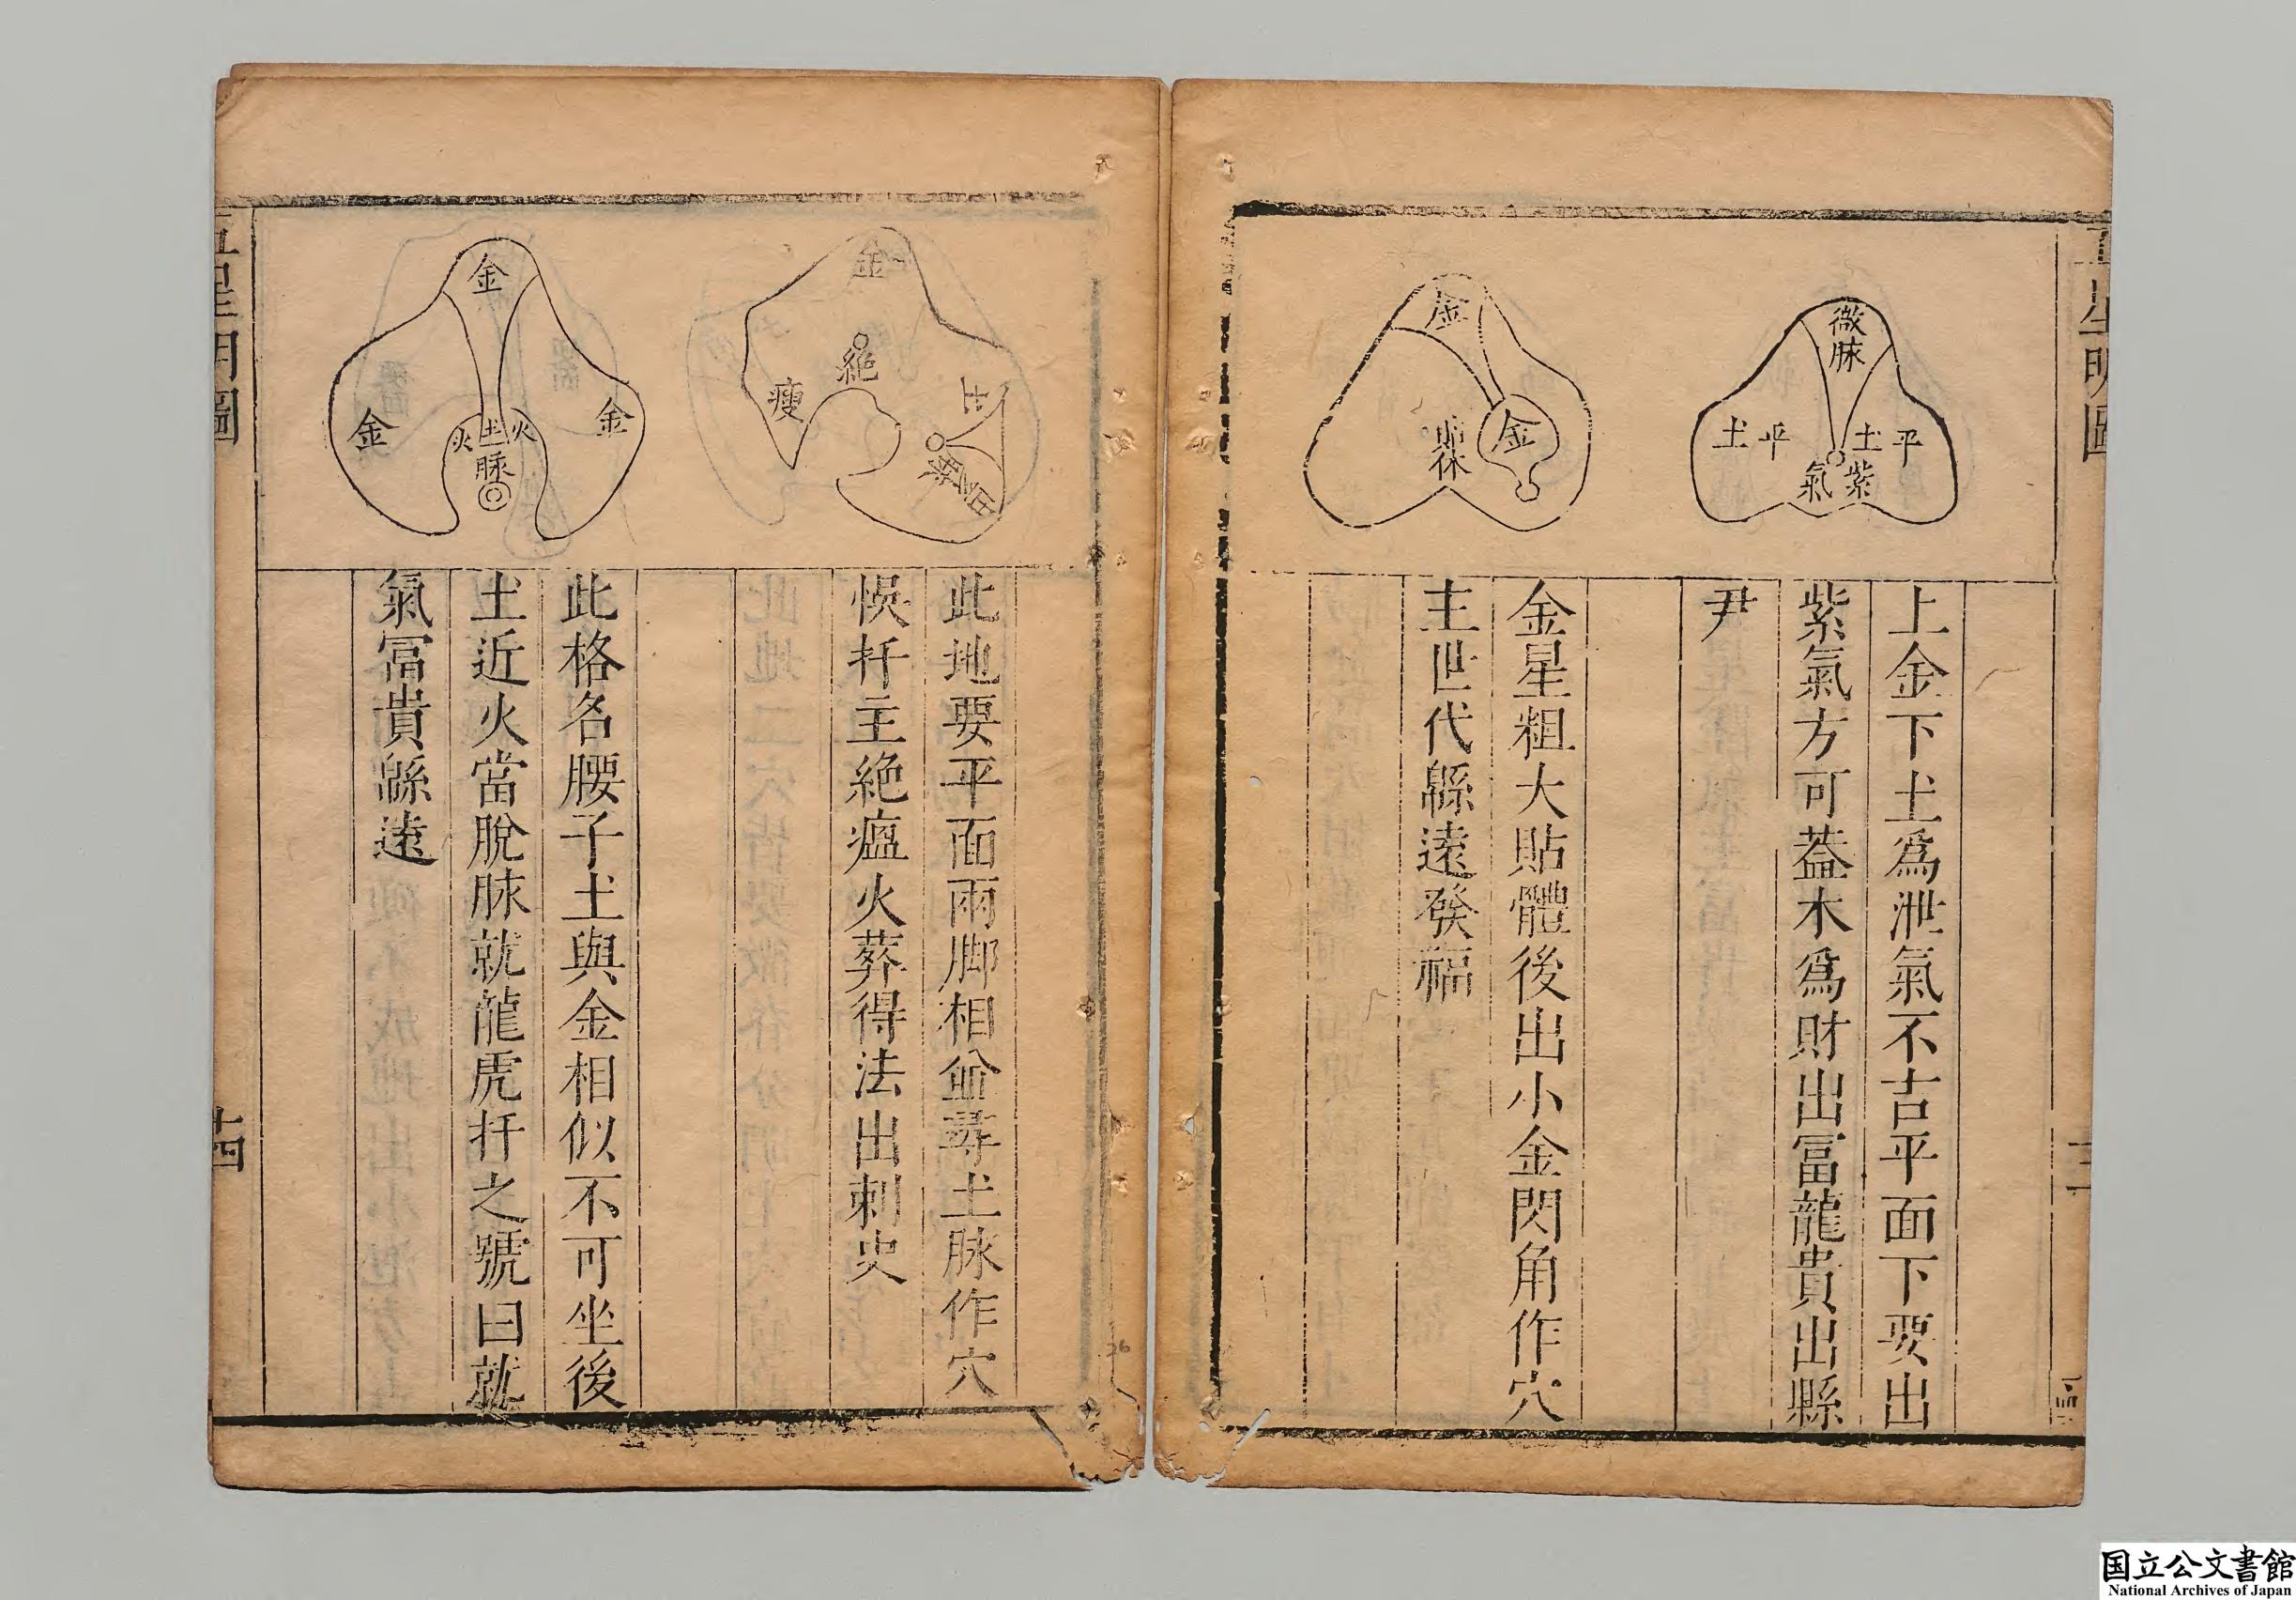 微脉
土平
土平
紫氣
上金下土爲泄氣不吉平面下要出
紫氣方可葢木爲財出冨龍貴出縣
尹
金
金
金星粗大貼體後出小金閃角作穴
主世代緜遠發福
金
絶
瘦
土
此地要平面兩脚相尋土脉作穴
悞扦主絶瘟火葬得法出刺史
金
金
金
火土火
脉
此格名腰子土與金相似不可坐後
土近火當脫脉就龍虎扦之號曰就
氣冨貴緜遠
五星明圖
十四
国立公文書館
National Archives of Japan